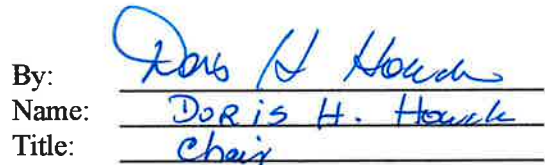 By: Doris H Houck
Name: DORiS H. Houck
Title: Chair